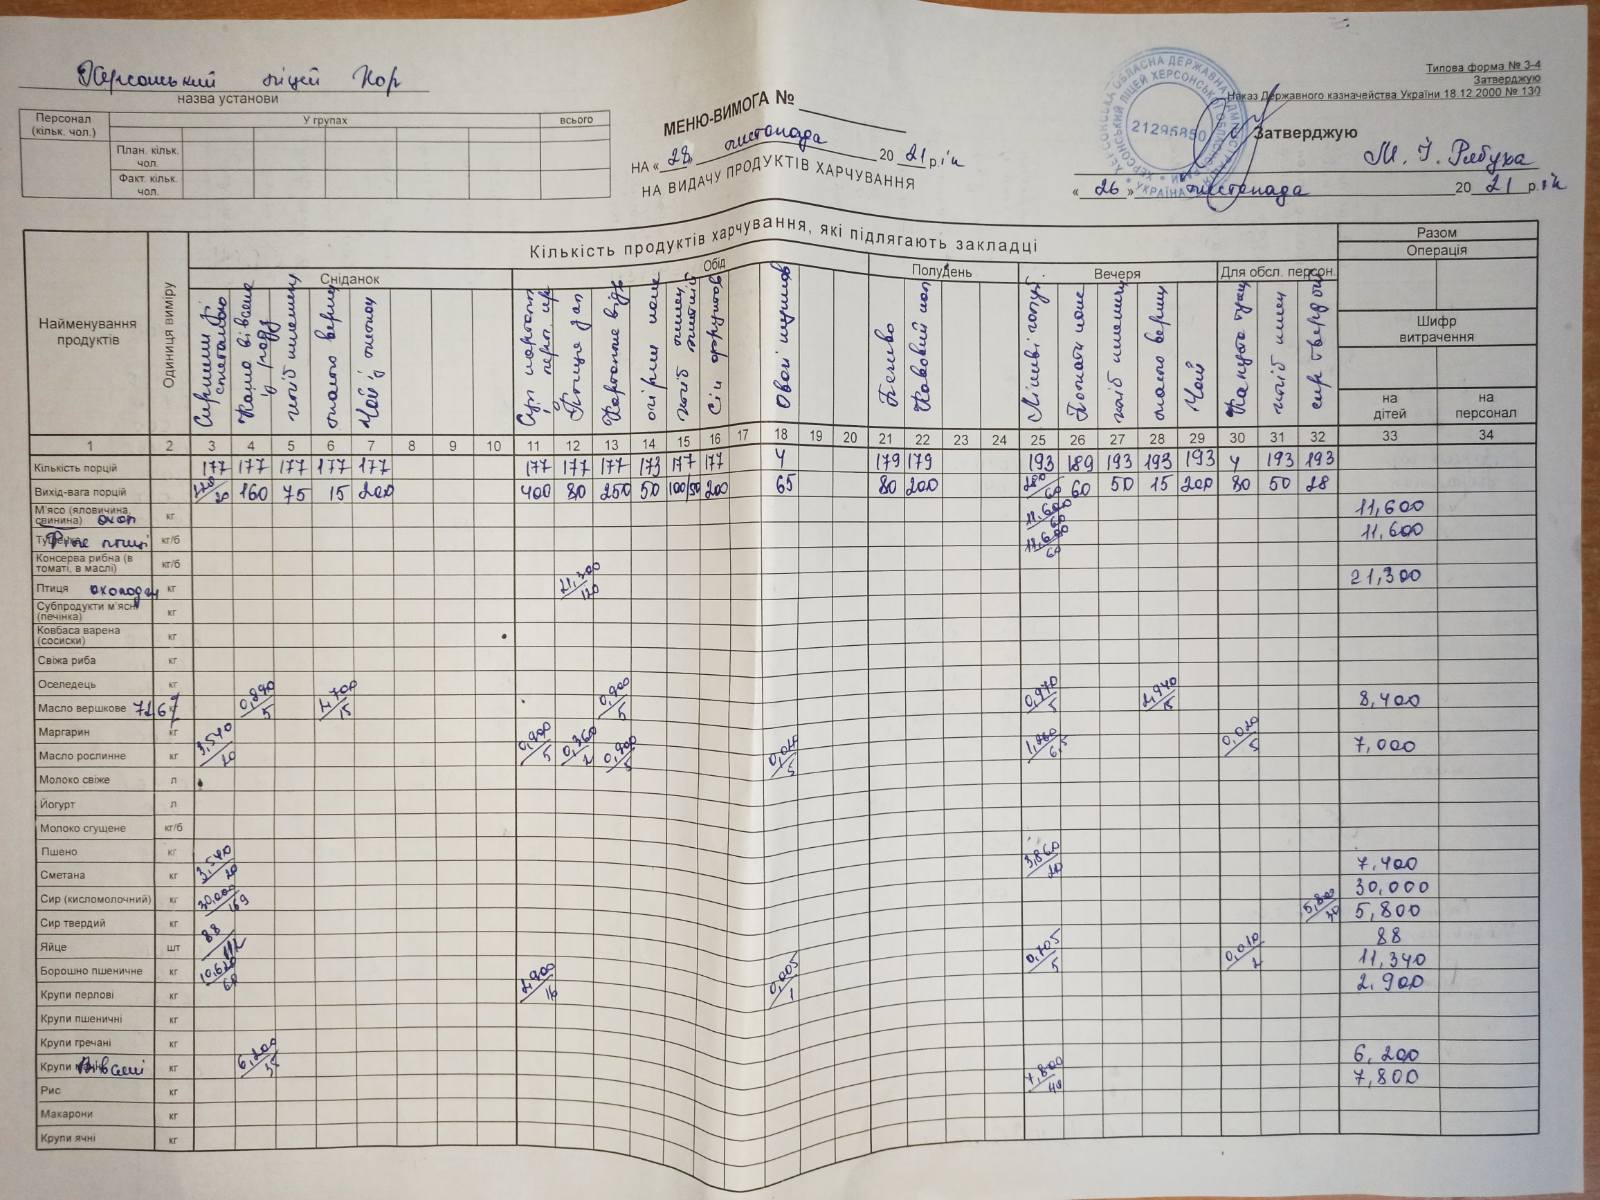 Херсонський ліцей ХОР
назва установи
Типова форма № З-4
Затверджую
Наказ Державного казначейства України 18.12.2000 № 130
Персонал (кільк. чол.)
У групах
всього
План. кільк. чол.
Факт. кільк. чол.
МЕНЮ-ВИМОГА №
НА « 28 » листопада 20 21 р.
НА ВИДАЧУ ПРОДУКТІВ ХАРЧУВАННЯ
21295850
Затверджую
М. І. Рябуха
« 26 » листопада 20 21 р.
Найменування продуктів
Одиниця виміру
Кількість продуктів харчування, які підлягають закладці
Разом
Операція
Шифр витрачення
на дітей
на персонал
Сніданок
Обід
Полудень
Вечеря
Для обсл. персон.
1 2 3 4 5 6 7 8 9 10 11 12 13 14 15 16 17 18 19 20 21 22 23 24 25 26 27 28 29 30 31 32 33 34
Кількість порцій 177 177 177 177 177 177 177 177 173 177 177 4 179 179 193 189 193 193 193 4 193 193
Вихід-вага порцій 120/20 160 75 15 200 400 80 250 50 100/50 200 65 80 200 200/60 60 50 15 200 80 50 28
М'ясо (яловичина, свинина) охол кг 11,600/60 11,600
Філе птиці кг/б 11,600/60 11,600
Консерва рибна (в томаті, в маслі) кг/б
Птиця охолодж кг 21,300/120 21,300
Субпродукти м'ясні (печінка) кг
Ковбаса варена (сосиски) кг
Свіжа риба кг
Оселедець кг
Масло вершкове кг 0,890/5 2,700/15 0,900/5 0,970/5 2,940/15 8,400
Маргарин кг
Масло рослинне кг 3,540/20 0,900/5 0,360/2 0,900/5 0,020/5 1,260/6,5 0,020/5 7,000
Молоко свіже л
Йогурт л
Молоко сгущене кг/б
Пшено кг
Сметана кг 3,540/20 3,860/20 7,400
Сир (кисломолочний) кг 30,000/169 30,000
Сир твердий кг 5,800/30 5,800
Яйце шт 88/1/2 88
Борошно пшеничне кг 10,620/60 0,005/1 0,705/5 0,010/2 11,340
Крупи перлові кг 2,900/16 2.900
Крупи пшеничні кг
Крупи гречані кг
Крупи вівсяні кг 6,200/35 6,200
Рис кг 7,800/40 7,800
Макарони кг
Крупи ячні кг